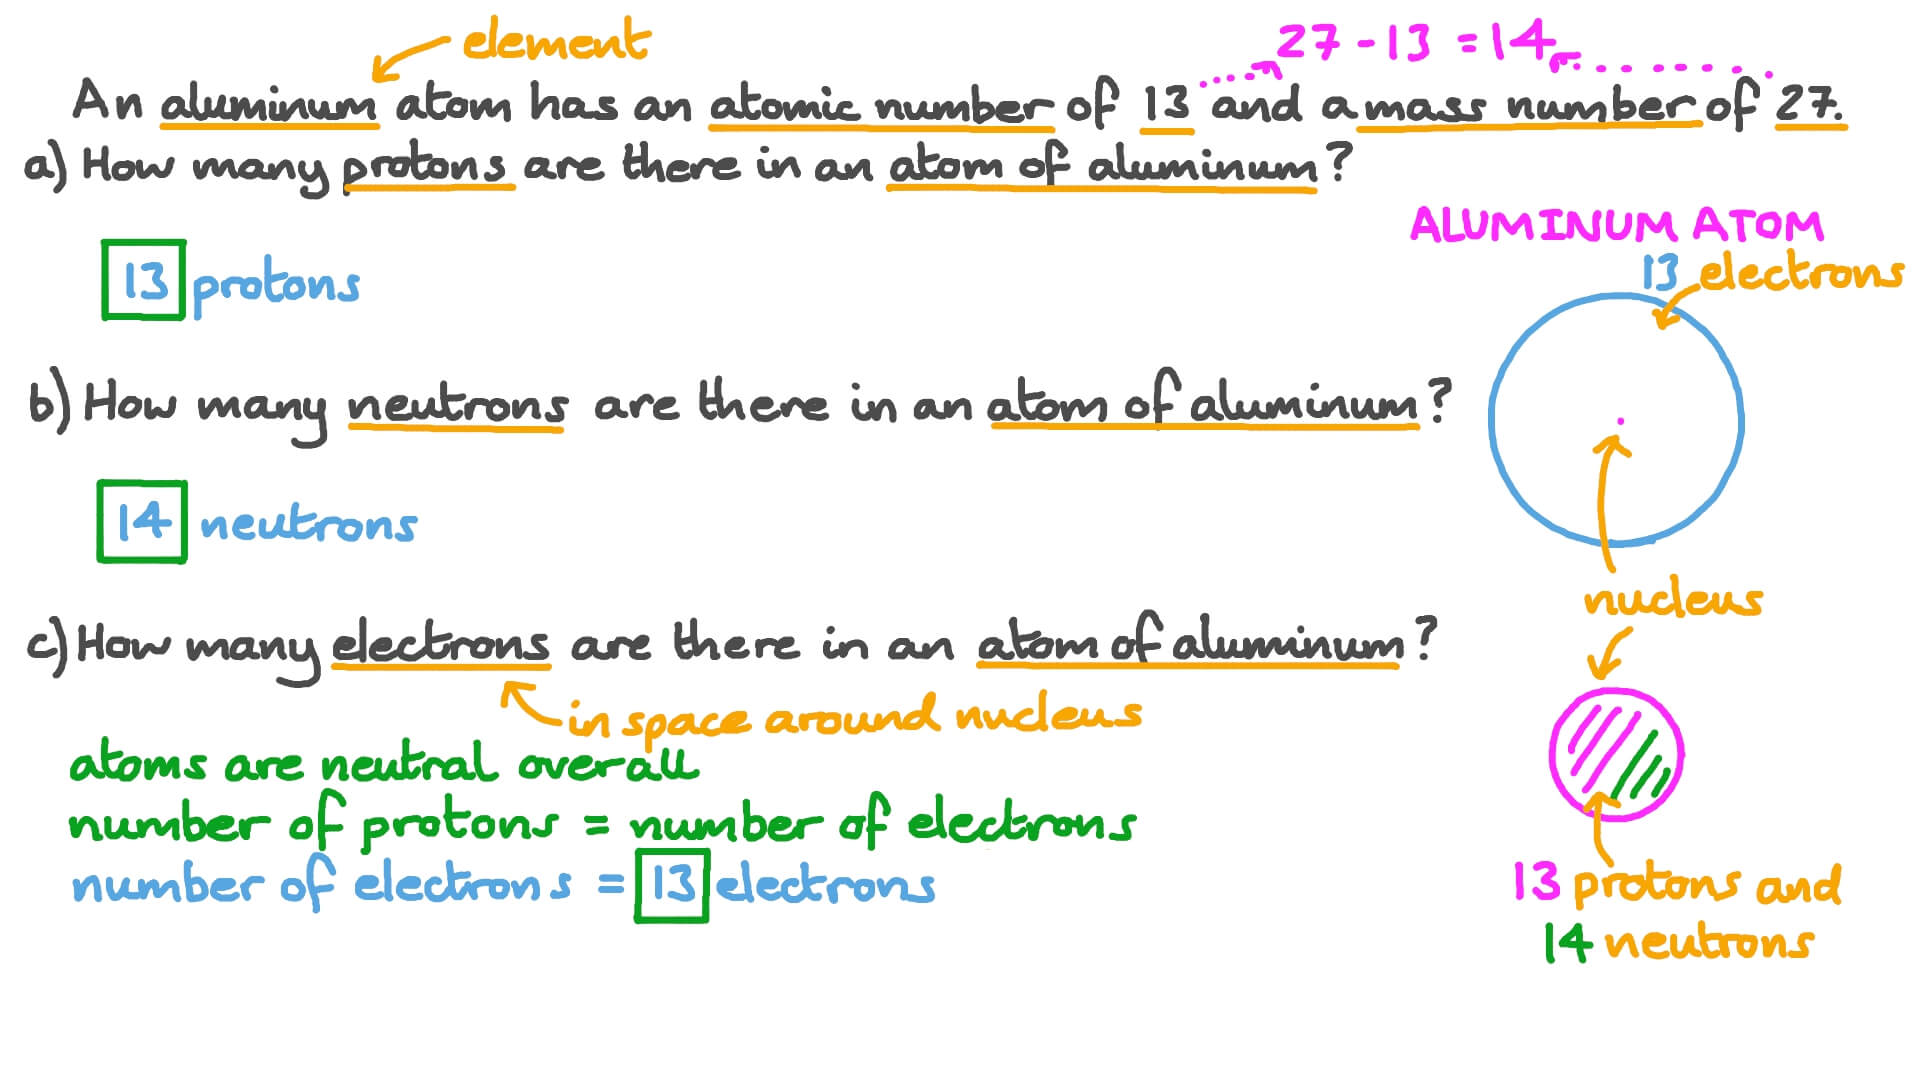 element
27 - 13 = 14
An aluminum atom has an atomic number of 13 and a mass number of 27.
a) How many protons are there in an atom of aluminum?
ALUMINUM ATOM
13 electrons
13 protons
b) How many neutrons are there in an atom of aluminum?
14 neutrons
nucleus
c) How many electrons are there in an atom of aluminum?
in space around nucleus
atoms are neutral overall
number of protons = number of electrons
number of electrons = 13 electrons
13 protons and
14 neutrons